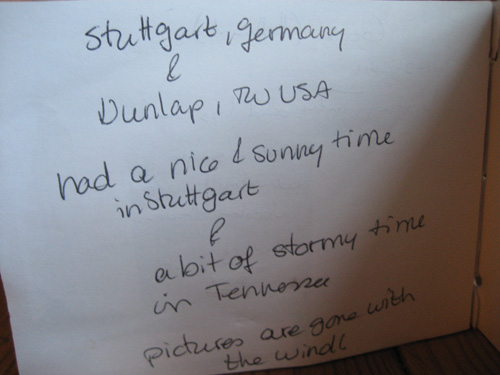 Stuttgart, Germany
&
Dunlap, TN USA
had a nice & sunny time
in Stuttgart
&
a bit of stormy time
in Tennessee
pictures are gone with
the wind(